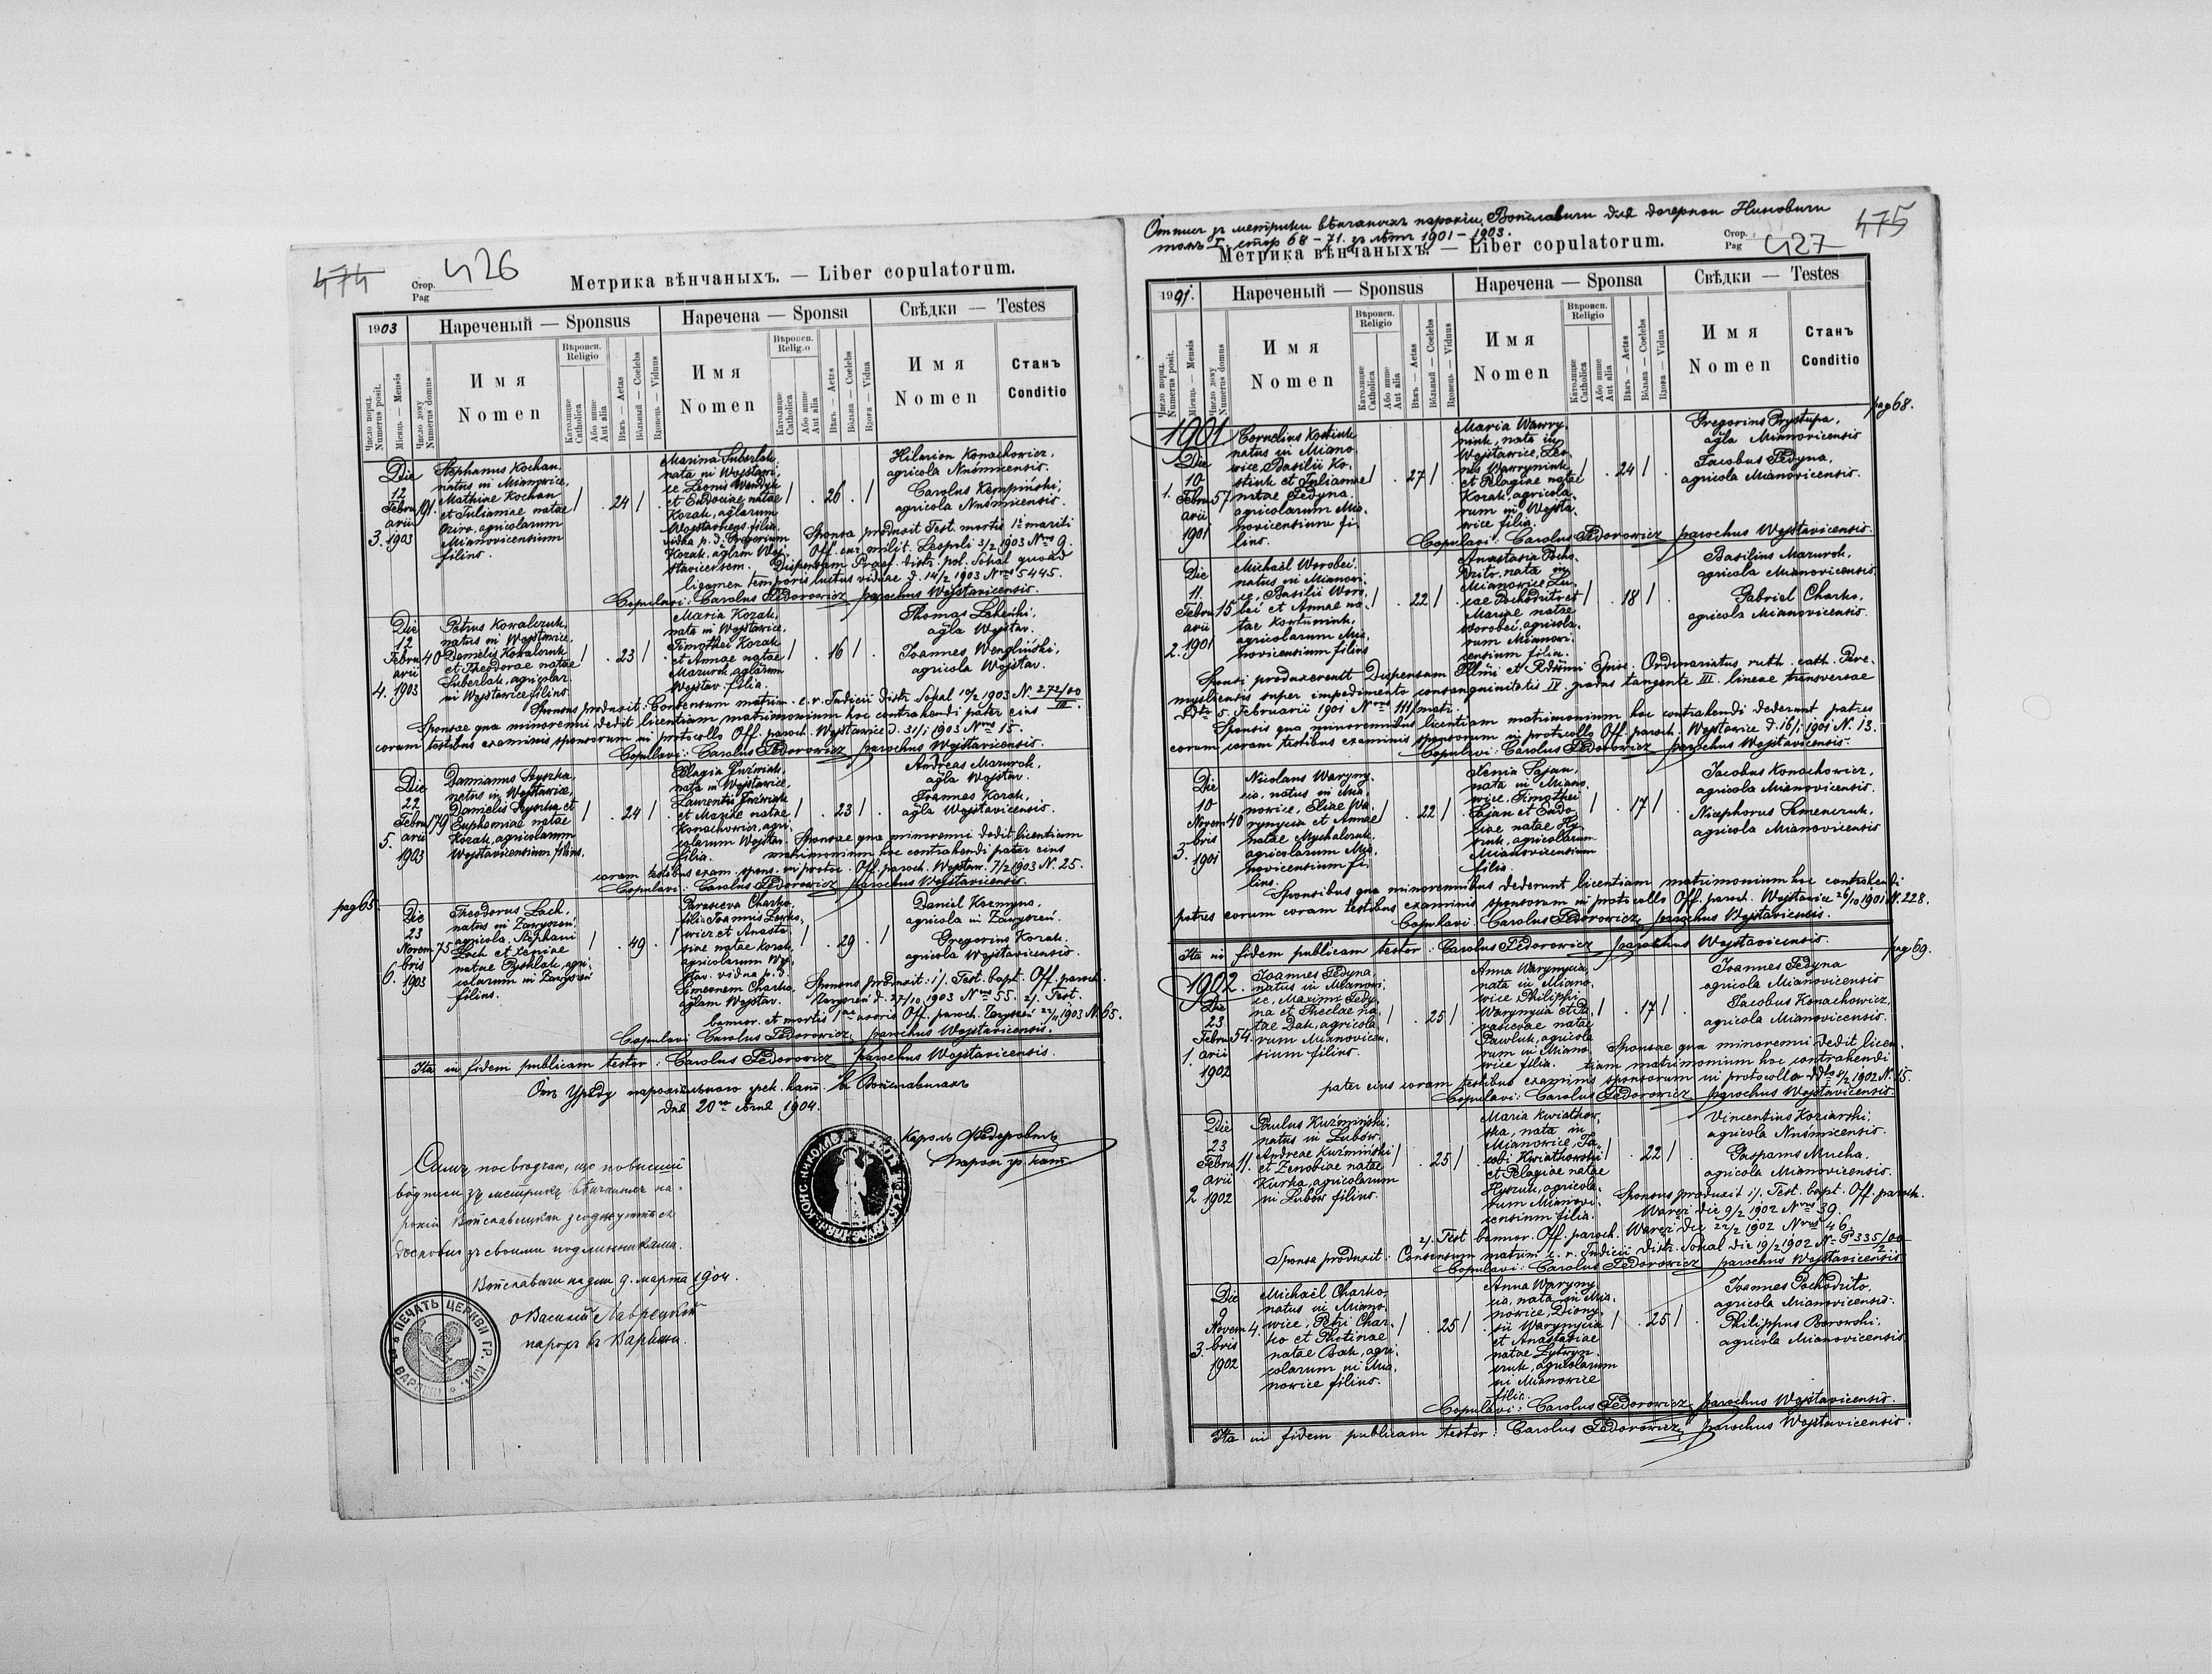 474
Стор.
Pag
426
Метрика вѣнчаныхъ. — Liber copulatorum.
1903
Нареченый — Sponsus
Нареченa — Sponsa
Свѣдки — Testes
Число поряд.
Numerus posit.
Місяць — Mensis
Число дому
Numerus domus
Имя
Nomen
Вѣроисп.
Religio
Католицке
Catholica
Або инше
Aut alia
Вѣкъ — Aetas
Вôльный — Coelebs
Вдовець — Viduus
Имя
Nomen
Вѣроисп.
Religio
Католицке
Catholica
Або инше
Aut alia
Вѣкъ — Aetas
Вôльна — Coelebs
Вдова — Vidua
Имя
Nomen
Станъ
Conditio
3.
Die
12
Febru
arii
1903
191.
Stephanus Kochan,
natus in Mianowice,
Mathiae Kochan
et Julianae natae
agricolarum
Mianovicensium
filius.
24
Marina Suberlak,
nata in Wojsławi-
ce Leonis
et Eudociae natae
Kozak, aglarum
Wojslavicens. filia,
vidua p. d. Gregorium
Kozak, aglam Woj-
slavicensem.
26
Hilarion Konachowicz,
agricola Nusmicensis.
Carolus Kempiński,
agricola Nusmicensis.
Sponsa produxit Test. mortis 1i mariti
Off. cur. milit. Leopoli 3/2 1903 Nrus 9.
Dispensam Praef. distr. pol. Sokal quoad
ligamen temporis luctus viduae d. 14/2 1903 Nrus 5445.
Copulavi: Carolus Fedorowicz parochus Wojslavicensis.
4.
Die
12
Febru
arii
1903
40
Petrus Kowalczuk,
natus in Wojsławice,
Danielis Kowalczuk
et Theodorae natae
Suberlak, agricolar.
in Wojsławice filius.
23
Maria Kozak,
nata in Wojsławice,
Timothei Kozak
et Annae natae
Mazurok, aglarum
Wojslav. filia.
16
Thomas
agla Wojslav.
Joannes Wengliński,
agricola Wojslav.
Sponsus produxit: Consensum matrim. c. r. Judicii Distr. Sokal 10/2 1903 N. 272/00
Sponsae qua minorenni dedit licentiam matrimonium hoc contrahendi pater eius
coram testibus examinis sponsorum in protocollo Off. paroch. Wojsławice d. 31/1 1903 Nrus 15.
Copulavi: Carolus Fedorowicz parochus Wojslavicensis.
5.
Die
22
Febru
arii
1903
179
Damianus Szyszka,
natus in Wojsławice,
Danielis Szyszka et
Euphemiae natae
Kozak, agricolarum
Wojslavicensium filius.
24
Pelagia
nata in Wojsławice,
Laurentii
et Mariae natae
Konachowicz, agri-
colarum Wojslav.
filia.
23
Andreas Mazurok,
agla Wojslav.
Joannes Kozak,
agla Wojslavicensis.
Sponsae qua minorenni dedit licentiam
matrimonium hoc contrahendi pater eius
coram testibus exam. spons. in protoc. Off. paroch. Wojslav. 7/2 1903 N. 25.
Copulavi: Carolus Fedorowicz parochus Wojslavicensis.
pag 65
6.
Die
23
Novem
bris
1903
75
Theodorus Lach,
natus in Zawyszeń,
agricola, Stephani
Lach et Xeniae
natae agri-
colarum in Zawyszeń
filius.
49
Parasceva Charko,
filia Joannis
et Anasta-
siae natae Kozak,
agricolarum Woj-
slav. vidua p. d.
Simeonem Charko,
aglam Wojslav.
29
Daniel Kozmyna,
agricola in Zawyszeń.
Gregorius Kozak,
agricola Wojslavicensis.
Sponsus produxit: 1/. Test. bapt. Off. paroch.
Zawyszeń d. 27/10 1903 Nrus 55. 2/. Test.
bannor. et mortis 1ae uxoris Off. paroch. Zawyszeń 22/11 1903 N. 65.
Copulavi Carolus Fedorowicz, parochus Wojslavicensis.
Ita in fidem publicam testor: Carolus Fedorowicz parochus Wojslavicensis.
Отъ Уряду парохіяльного грек. кат. въ Войславичахъ
дня 20го 1904.
Кароль Федоровичъ
парох гр. кат.
Симъ посвѣдчаю, що повысшій
вôдписи зъ метрикъ вѣнчаныхъ па-
рохіи Войславицкои згоджуются
дословно зъ своими подлинниками.
Войславичи на дни 9. марта 1904.
о Василій Лаврецкій
парохъ въ Варяжи.
ПЕЧАТЬ ЦЕРКВИ ГР. КАТ. ВЪ ВАРЯЖИ
Отписъ зъ метрики вѣнчаныхъ парохіи Войславичи для дочернои Нисмичи
томъ I. стор 68 – 71. зъ лѣтъ 1901 – 1903.
Метрика вѣнчаныхъ. — Liber copulatorum.
Стор.
Pag
427
475
1901.
Нареченый — Sponsus
Наречена — Sponsa
Свѣдки — Testes
Число поряд.
Numerus posit.
Місяць — Mensis
Число дому
Numerus domus
Имя
Nomen
Вѣроисп.
Religio
Католицке
Catholica
Або инше
Aut alia
Вѣкъ — Aetas
Вôльный — Coelebs
Вдовець — Viduus
Имя
Nomen
Вѣроисп.
Religio
Католицке
Catholica
Або инше
Aut alia
Вѣкъ — Aetas
Вôльна — Coelebs
Вдова — Vidua
Имя
Nomen
Станъ
Conditio
pag 68.
1901
1.
Die
10
Febru
arii
1901
57
Cornelius Kostiuk
natus in Miano-
wice, Basilii Ko-
stiuk et Julianae
natae Fedyna,
agricolarum Mia-
novicensium fi-
lius.
27
Maria Wawry-
niuk, nata in
Wojsławice, Leo-
nis Wawryniuk
et Pelagiae natae
Kozak, agricola-
rum in Wojsła-
wice filia.
24
Gregorius Prystupa,
agla Mianovicensis
Jacobus Fedyna,
agricola Mianovicensis.
Copulavi: Carolus Fedorowicz parochus Wojslavicensis.
2.
Die
11.
Febru
arii
1901
15
Michaël Worobeć,
natus in Mianowi-
ce, Basilii Woro-
beć et Annae na-
tae
agricolarum Mia-
novicensium filius
22
Anastasia Pocho-
dzito, nata in
Mianowice, Lu-
cae Pochodzito et
Mariae natae
Worobeć, agricola-
rum Mianovi-
censium filia.
18
Basilius Mazurok,
agricola Mianovicensis.
Gabriel Charko,
agricola Mianovicensis.
Sponsi produxerunt Dispensam Illmi et Rdssmi Episc. Ordinariatus ruth. cath. Pere-
mysliensis super impedimento consanguinitatis IV. gradus tangente III. lineae transversae
Ddto 5. Februarii 1901 Nrus 111/matr.
Sponsis qua minorennibus licentiam matrimonium hoc contrahendi dederunt patres
eorum coram testibus examinis sponsorum in protocollo Off. paroch. Wojsławice d. 16/1 1901 N. 13.
Copulavi: Carolus Fedorowicz parochus Wojslavicensis.
3.
Die
10
Novem
bris
1901
40
Nicolaus Waryny-
cia, natus in Mia-
nowice, Eliae Wa-
rynycia et Annae
natae Mychalczuk,
agricolarum Mia-
novicensium fi-
lius.
22
Xenia Sajan,
nata in Miano-
wice, Timothei
Sajan et Eudo-
ciae natae Hy-
czuk, agricolarum
Mianovicensium
filia.
17
Jacobus Konachowicz,
agricola Mianovicensis.
Nicephorus Semenczuk,
agricola Mianovicensis
Sponsibus qua minorennibus dederunt licentiam matrimonium hoc contrahendi
patres eorum coram testibus examinis sponsorum in protocollo Off. paroch. Wojsławice 26/10 1901 N. 228.
Copulavi: Carolus Fedorowicz, parochus Wojslavicensis.
Ita in fidem publicam testor: Carolus Fedorowicz parochus Wojslavicensis.
pag 69.
1902.
1.
Die
23
Febru
arii
1902
54.
Joannes Fedyna,
natus in Mianowi-
ce, Maximi Fedy-
na et Theclae na-
tae Dak, agricola-
rum Mianovicen-
sium filius.
25
Anna Warynycia,
nata in Miano-
wice, Philippi
Warynycia et Pa-
rascevae natae
Pawluk, agricola-
rum in Miano-
wice filia.
17
Joannes Fedyna
agricola Mianovicensis
Jacobus Konachowicz,
agricola Mianovicensis.
Sponsae qua minorenni dedit licen-
tiam matrimonium hoc contrahendi
pater eius coram testibus examinis sponsorum in protocollo ddto 8/2 1902 N. 15.
Copulavi: Carolus Fedorowicz parochus Wojslavicensis.
2
Die
23
Febru
arii
1902
11.
Paulus Kuźmiński,
natus in Lubów
Andreae Kuźmiński
et Zenobiae natae
Kurka, agricolarum
in Lubów filius.
25
Maria Kwiatkow-
ska, nata in
Mianowice, Ja-
cobi Kwiatkowski
et Pelagiae natae
Hyczuk, agricola-
rum Mianovi-
censium filia.
22
Vincentius Koziarski,
agricola Nusmicensis.
Gasparus Mucha,
agricola Mianovicensis.
Sponsus produxit 1/. Test. bapt. Off. paroch.
Waręż die 9/2 1902 Nrus 39.
2/. Test bannor. Off. paroch. Waręż die 22/2 1902 Nrus 46.
Sponsa produxit: Consensum matrim c. r. Judicii Distr. Sokal die 19/2 1902 No P 335/00
Copulavi: Carolus Fedorowicz parochus Wojslavicensis
3.
Die
9
Novem
bris
1902
4.
Michaël Charko,
natus in Miano-
wice, Petri Char-
ko et Photinae
natae Bak, agri-
colarum in Mia-
nowice filius.
25
Anna Waryny-
cia, nata in Mia-
nowice, Diony-
sii Warynycia
et Anastasiae
natae Lytwyn-
czuk, agricolarum
in Mianowice
filia.
25
Joannes Pochodzito,
agricola Mianovicensis.
Philippus Borowski,
agricola Mianovicensis
Copulavi: Carolus Fedorowicz parochus Wojslavicensis.
Ita in fidem publicam testor: Carolus Fedorowicz, parochus Wojslavicensis.